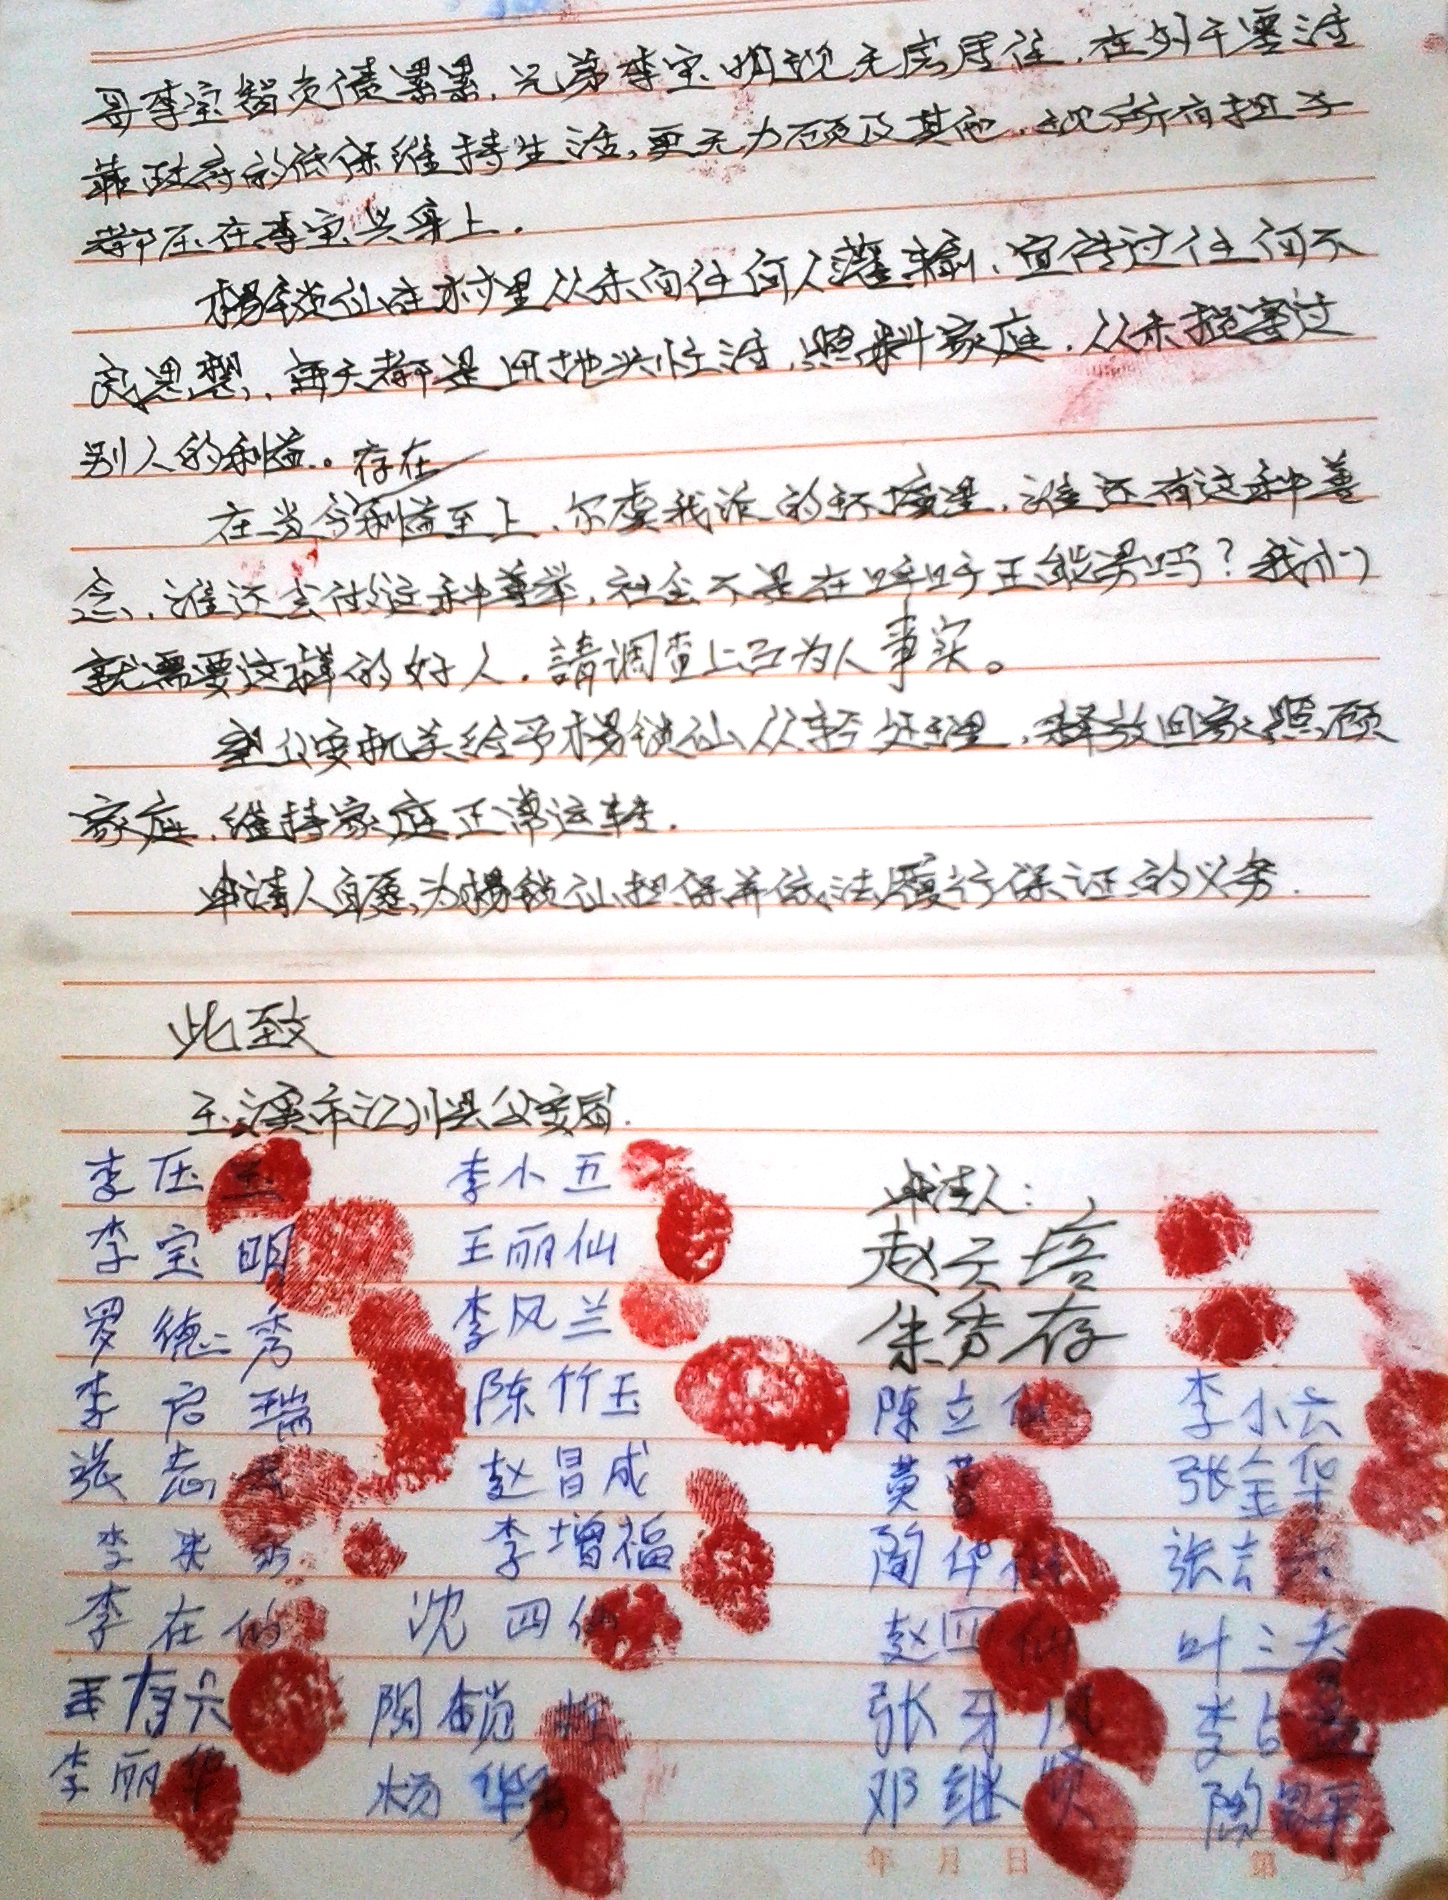 哥李宝智负债累累,兄弟李宝明现无房居住,在外干零活
靠政府的低保维持生活,更无力顾及其他,现所有担子
都压在李宝兴身上.
杨锁仙在村里从未向任何人灌输、宣传过任何不
良思想,每天都是田地兴忙活,照料家庭,从未损害过
别人的利益。存在
在当今利益至上、尔虞我诈的环境里,谁还有这种善
念,谁还会做这种善举,社会不是在呼吁正能量吗?我们
就需要这样的好人.請调查上石为人事实。
望公安机关给予杨锁仙从轻处理,释放回家照顾
家庭,维持家庭正常运转.
申请人自愿为杨锁仙担保并依法履行保证的义务.
此致
玉溪市江川县公安局.
李压玉 李小五 申请人:
李宝明 王丽仙 赵云培
罗德秀 李凤兰 朱秀存
李启瑞 陈竹玉 陈立仙 李小六
张志 赵昌成 黄 张金华
李 李增福 陶华仙 张吉六
李在仙 沈四仙 赵四仙 叶三秀
王有兴 陶锁 张牙凤 李占
李丽华 杨华 邓继贤 陶思平
年 月 日 第 页